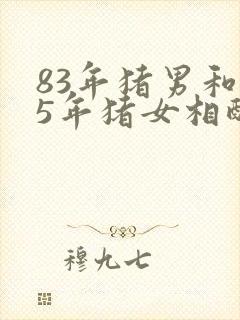 83年猪男和
5年猪女相配
穆九七